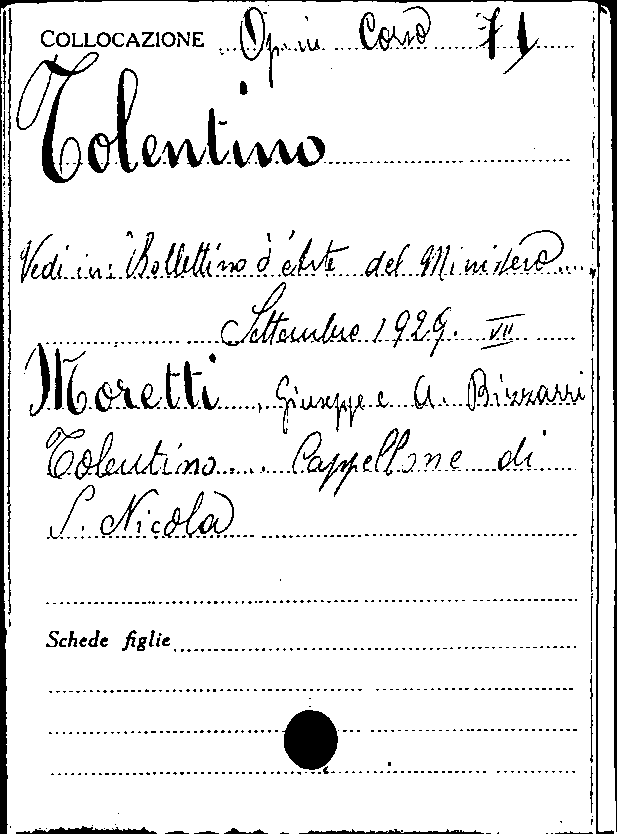 COLLOCAZIONE Op. in Corso 71
Tolentino
Vedi in: Bollettino d'Arte del Ministero
Settembre 1929. VII
Moretti, Giuseppe e A. Bizzarri
Tolentino... Cappellone di
S. Nicola
Schede figlie